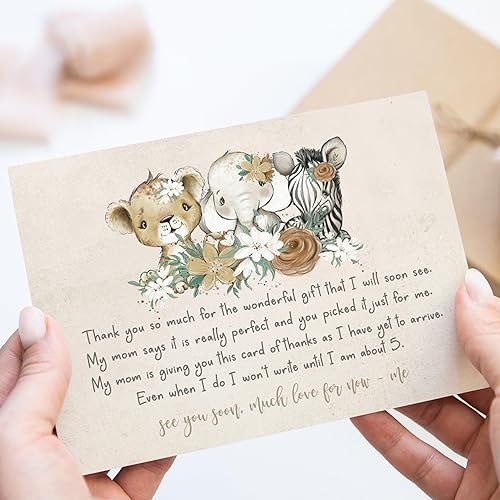 Thank you so much for the wonderful gift that I will soon see.
My mom says it is really perfect and you picked it just for me.
My mom is giving you this card of thanks as I have yet to arrive.
Even when I do I won't write until I am about 5.
see you soon, much love for now - me